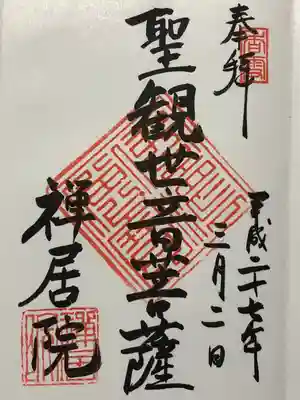 奉拝
平成二十七年
三月二日
聖観世音菩薩
禅居院